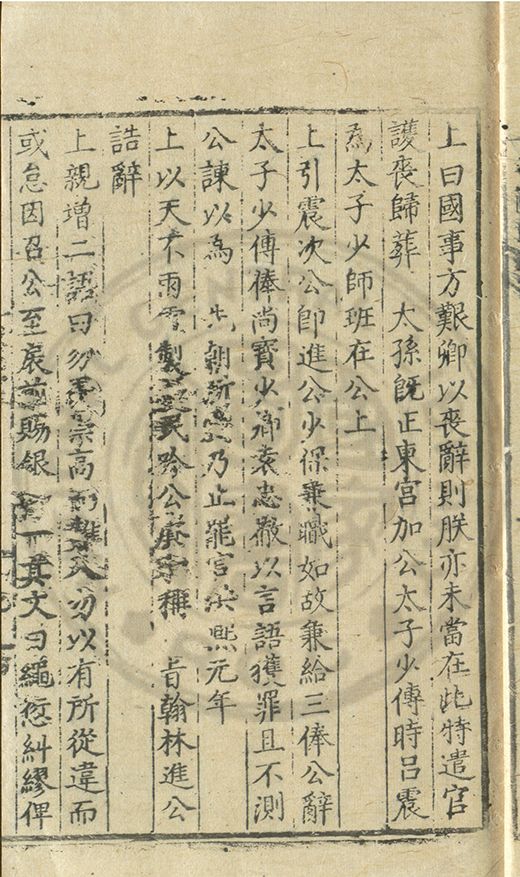 上曰國事方艱卿以喪辭則朕亦未當在此特遣官
護喪歸葬 太孫旣正東宮加公太子少傅時呂震
為太子少師班在公上
上引震次公卽進公少保兼職如故兼給三俸公辭
太子少傅俸尚寶少卿袁忠徹以言語獲罪且不測
公諫以為 先朝所乃止罷官洪熙元年
上以天不雨雪製民吟公稱 旨翰林進公
誥辭
上親增二語曰勿崇高入勿以有所從違而
或怠因召公至扆前賜銀一其文曰繩愆糾繆俾